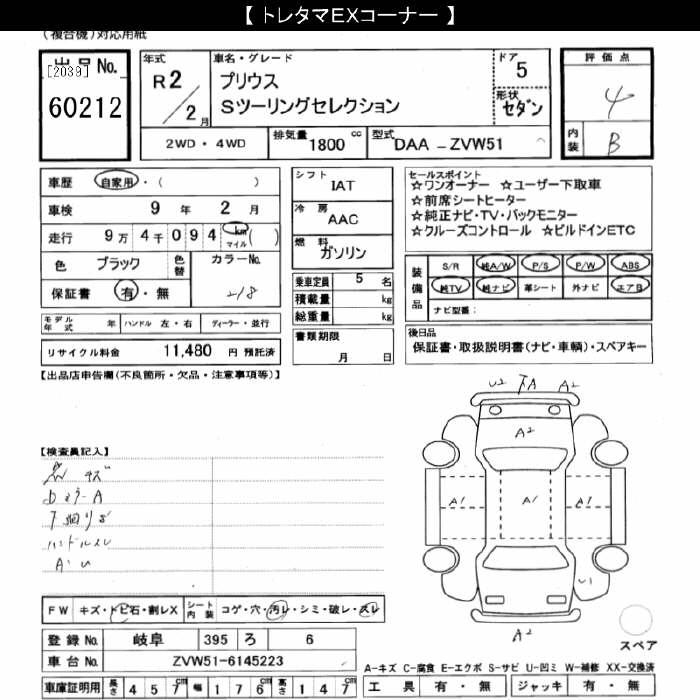 【 トレタマEXコーナー 】
(複合機)対応用紙
出品No.
[2039]
60212
年式
R2/2月
車名・グレード
プリウス
Sツーリングセレクション
ドア
5
形状
セダン
評価点
4
内装
B
2WD・4WD
排気量 1800 cc
型式 DAA -ZVW51
車歴 自家用・( )
車検 9 年 2 月
走行 9万 4千 0 9 4 km マイル ( )
色 ブラック
色替
カラーNo.
218
保証書 有・無
シフト
IAT
冷房
AAC
燃料
ガソリン
乗車定員 5 名
積載量 kg
総重量 kg
書類期限
月 日
セールスポイント
☆ワンオーナー ☆ユーザー下取車
☆前席シートヒーター
☆純正ナビ・TV・バックモニター
☆クルーズコントロール ☆ビルドインETC
装備品
S/R 純A/W P/S P/W ABS
純TV 純ナビ 革シート 外ナビ エアB
ナビ型番:
モデル年式 年 ハンドル 左・右 ディーラー・並行
リサイクル料金 11,480 円 預託済
後日品
保証書・取扱説明書(ナビ・車輌)・スペアキー
【出品店申告欄(不良箇所・欠品・注意事項等)】
【検査員記入】
キズ
DミラーA
下廻りS
ハンドルスレ
A・U
U2 下A A2
A2
A1 A1 A1
U1
A2
スペア
FW キズ・トビ石・割レX
シート内装 コゲ・穴・汚レ・シミ・破レ・スレ
登録No. 岐阜 395 ろ 6
車台No. ZVW51-6145223
車庫証明用 長さ 4 5 7 cm 幅 1 7 6 cm 高さ 1 4 7 cm
A-キズ C-腐食 E-エクボ S-サビ U-凹ミ W-補修 XX-交換済
工具 有・無 ジャッキ 有・無